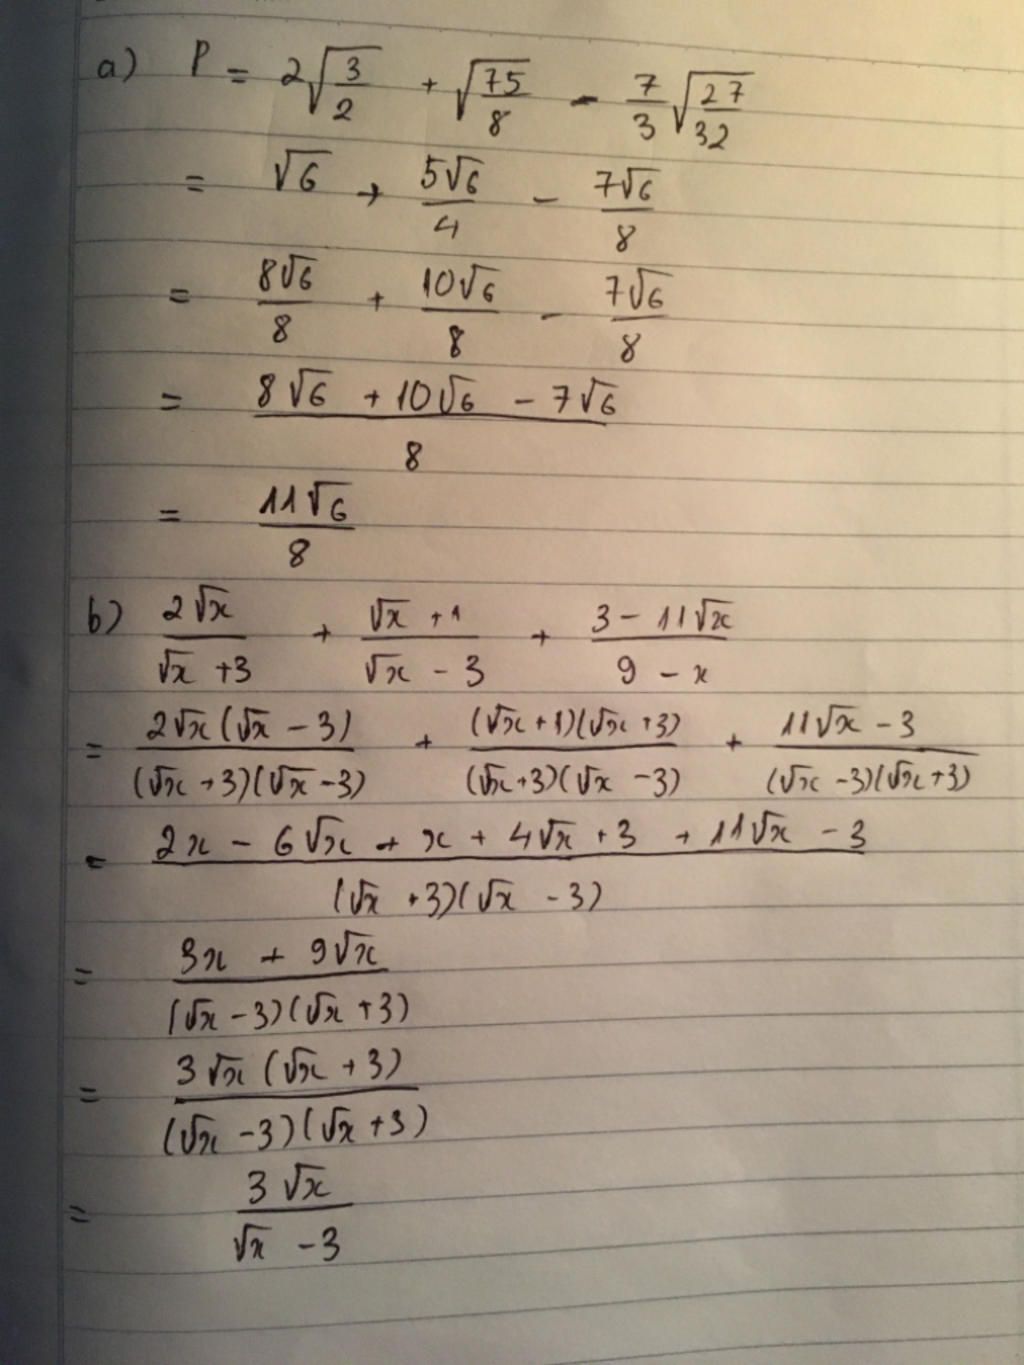 a) P = 2√(3/2) + √(75/8) - 7/3 √(27/32)
= √6 + 5√6/4 - 7√6/8
= 8√6/8 + 10√6/8 - 7√6/8
= (8√6 + 10√6 - 7√6)/8
= 11√6/8
b) 2√x/(√x + 3) + (√x + 1)/(√x - 3) + (3 - 11√x)/(9 - x)
= 2√x(√x - 3)/((√x + 3)(√x - 3)) + (√x + 1)(√x + 3)/((√x + 3)(√x - 3)) + (11√x - 3)/((√x - 3)(√x + 3))
= (2x - 6√x + x + 4√x + 3 + 11√x - 3)/((√x + 3)(√x - 3))
= (3x + 9√x)/((√x - 3)(√x + 3))
= 3√x(√x + 3)/((√x - 3)(√x + 3))
= 3√x/(√x - 3)